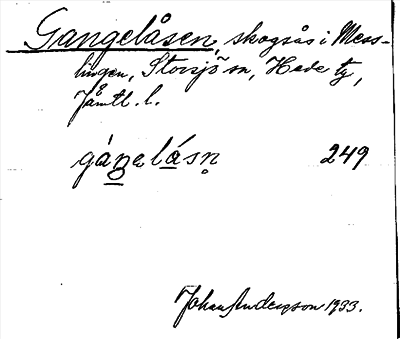 Gangelåsen, skogsås i Mess-
lingen, Storsjö sn, Hede tg,
Jämtl. l.
gáŋelásn̥ 249
Johan Anderson 1933.